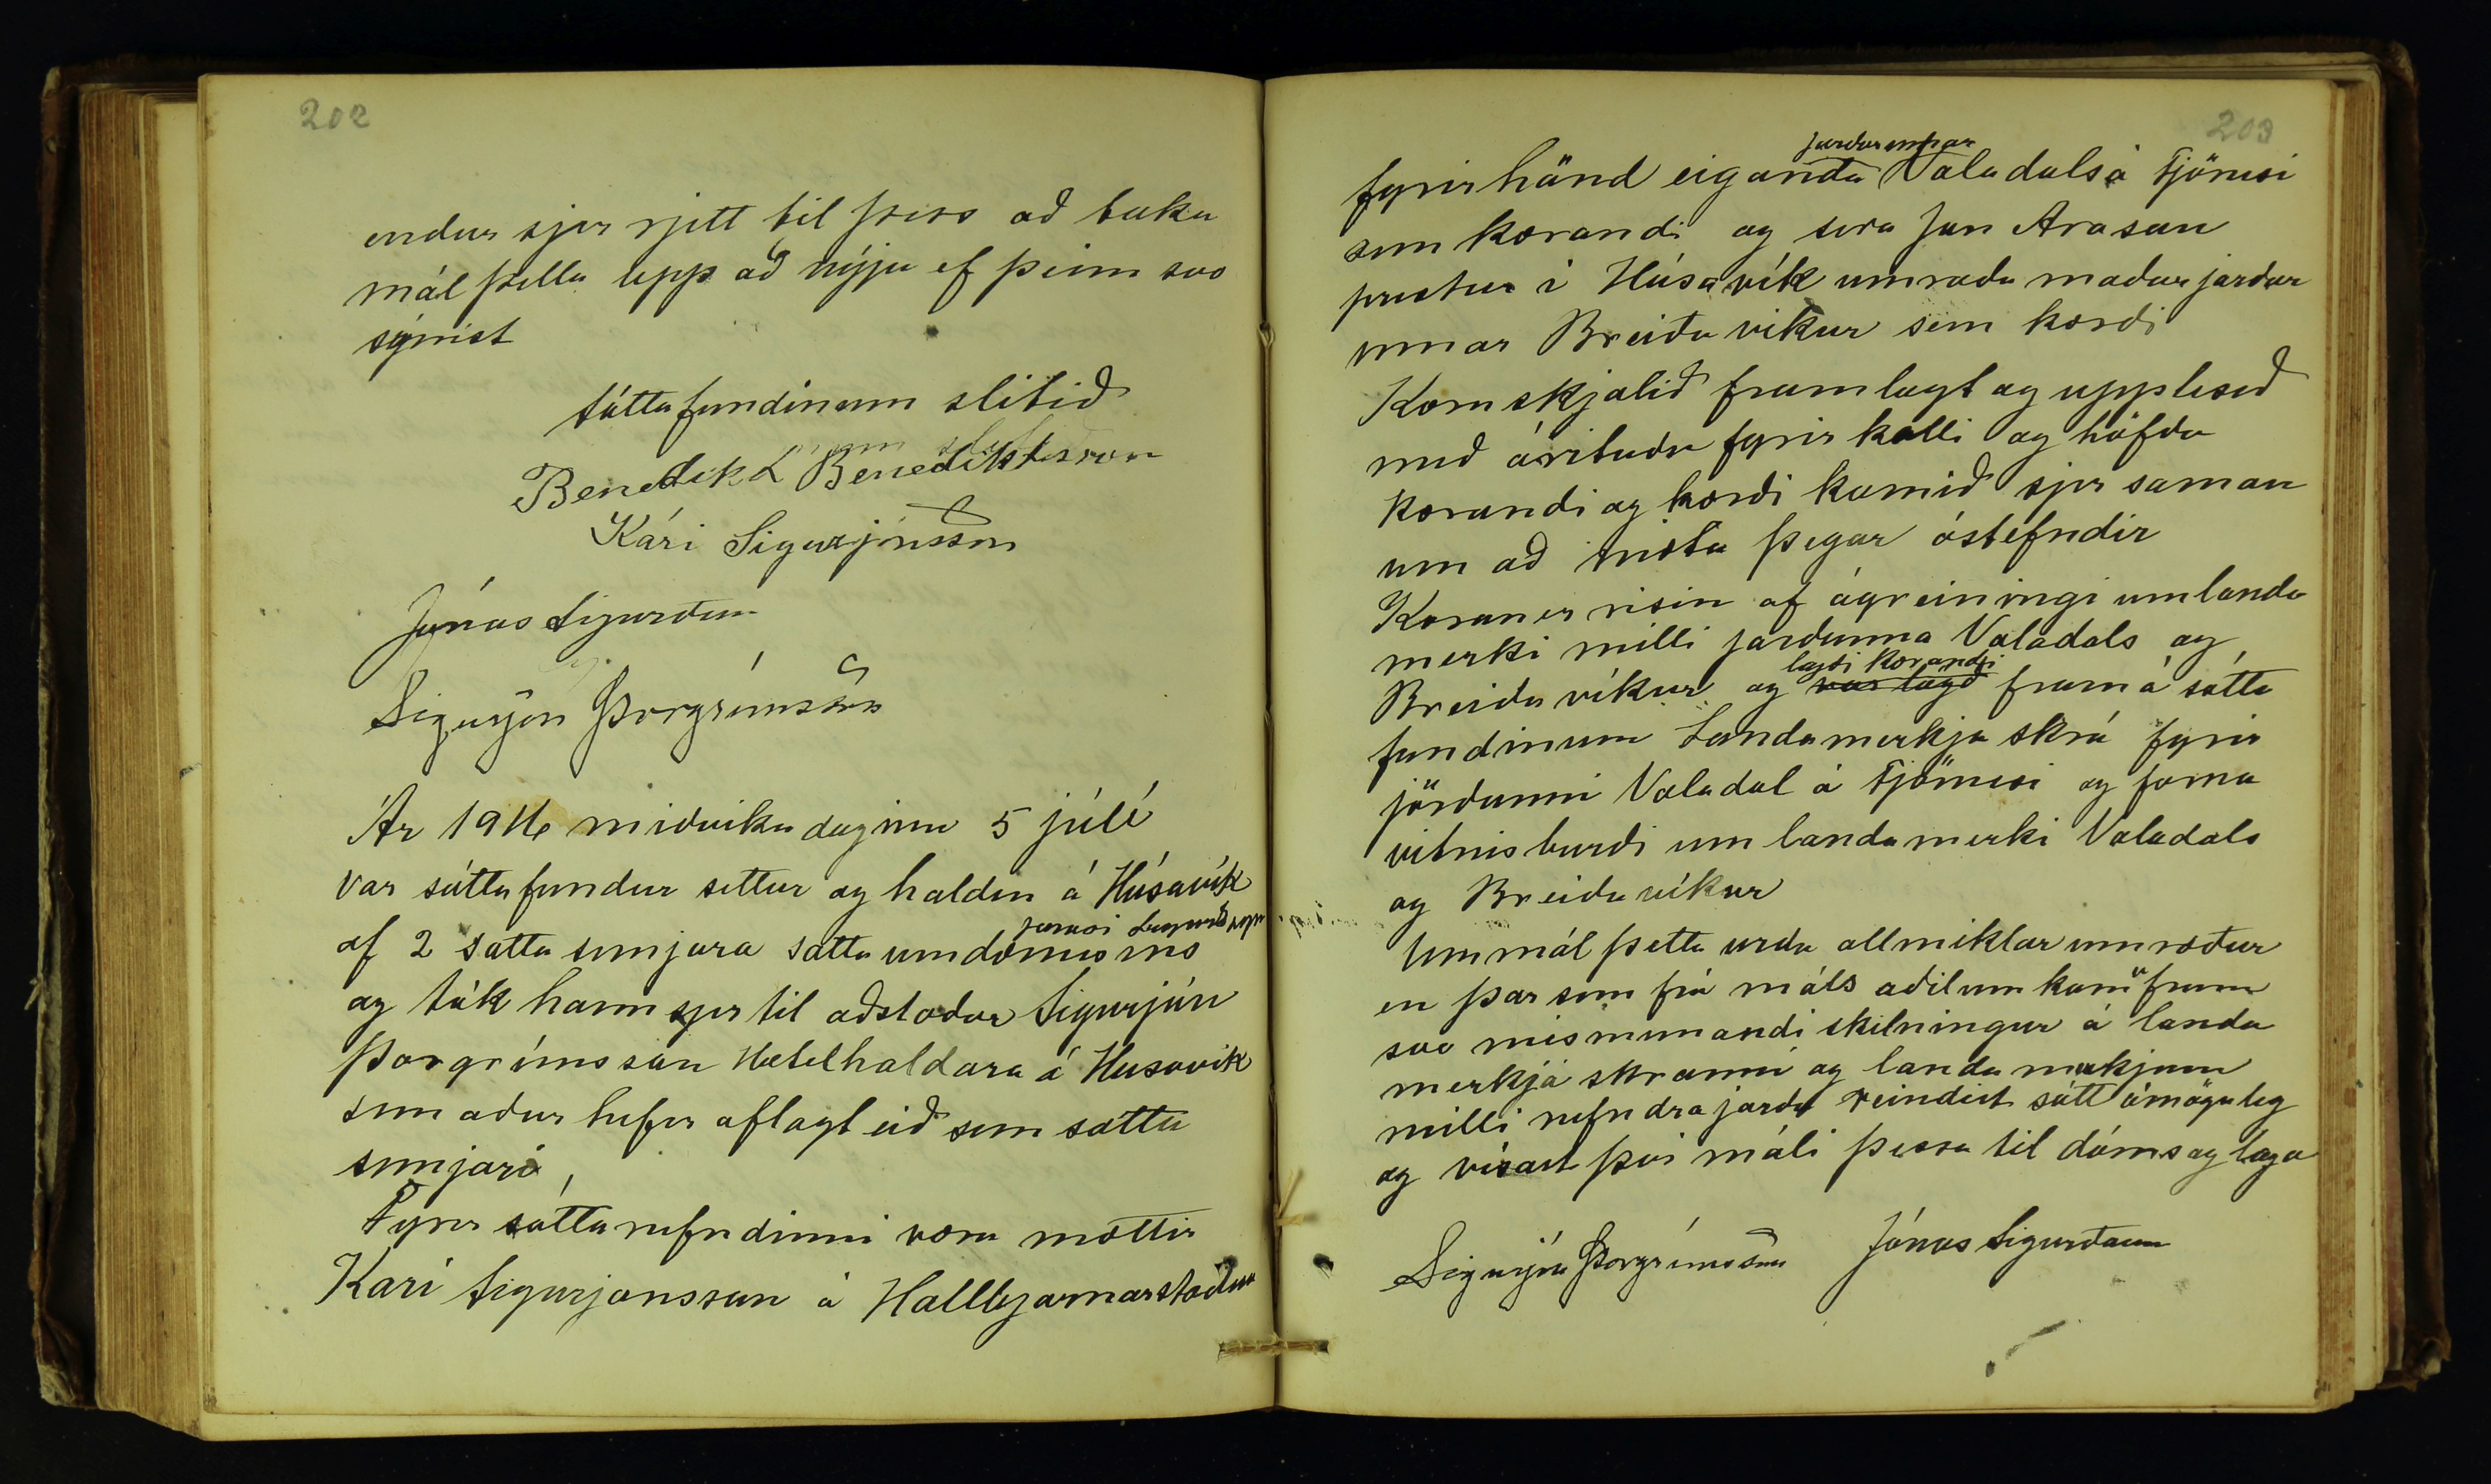 202
endur sjer rjett til þess að taka
mál þetta upp að nýju ef þeim svo
sýnist
sáttafundinum slitið
Benedikt Benediktsson
Kári Sigurjónsson
Jónas Sigurðsson
Sigurjón Þorgrímsson
Ár 1916 miðvikudaginn 5 júlí
var sáttafundur settur og haldin á Húsavík
af 2 sátta semjara sátta umdæmis ins
Jónasi Sigurðssyni
og tók hann sjer til aðstoðar Sigurjón
Þorgrímsson Hotelhaldara á Húsavik
sem aður hefir aflagt eið sem satta
semjari,
Fyrir sáttanefndinni voru mættir
Kári Sigurjonsson á Hallbjarnarstöðum
203
jardarinnar
fyrir hönd eiganda Valadals á Tjörnesi
sem kærandi og sera Jon Arason
prestur i Húsavík umráða maður jarðar
innar Breiðuvikur sem kærði
Kæruskjalið framlagt og upplesið
með árituðu fyrir kalli og höfðu
kærandi og kærði komið sjer saman
um að mæta þegar óstefndir
Kæran er risin af ágreiningi um landa
merki milli jarðanna Valadals og
lagði kærandi
Breiðuvíkur og var lagð fram á sátta
fundinum Landamerkja skrá fyrir
jörðunni Valadal á Tjörnesi og forna
vitnisburði um landamerki Valadals
og Breiðuvíkur
Um mál þetta urðu allmiklar umræður
en þar sem frá máls aðilum kom fram
svo mismunandi skilningur á landa
merkja skránni og landamerkjum
milli nefndra jarða reindist sátt ómöguleg
og vísast því máli þessu til dóms og laga
Sigurjón Þorgrímsson Jónas Sigurðsson